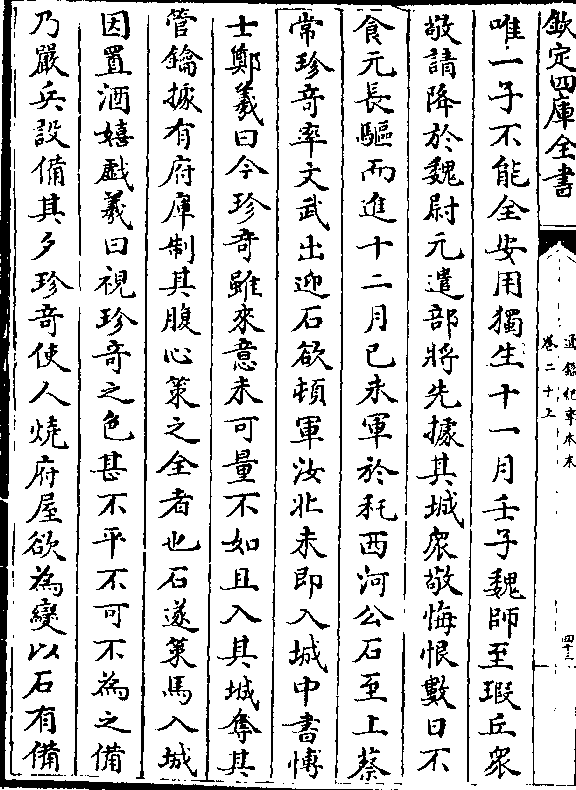 欽定四庫全書
通鑑紀事本末
卷二十上
四十三
唯一子不能全安用獨生十一月壬子魏師至瑕丘衆
敬請降於魏尉元遣部將先據其城衆敬悔恨數日不
食元長驅而進十二月己未軍於秺西河公石至上蔡
常珍奇率文武出迎石欲頓軍汝北未即入城中書博
士鄭羲曰今珍奇雖來意未可量不如且入其城奪其
管鑰據有府庫制其腹心策之全者也石遂策馬入城
因置酒嬉戲羲曰視珍奇之色甚不平不可不為之備
乃嚴兵設備其夕珍奇使人燒府屋欲為變以石有備